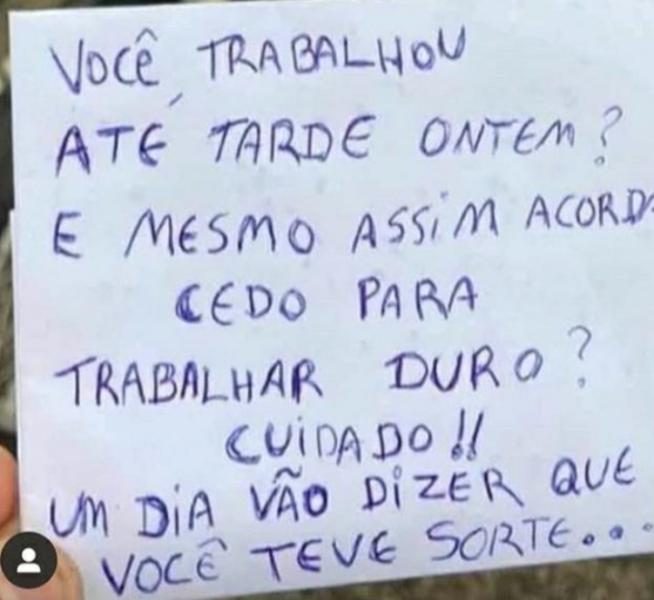 VOCÊ TRABALHOU
ATÉ TARDE ONTEM?
E MESMO ASSIM ACORD
CEDO PARA
TRABALHAR DURO?
CUIDADO!!
UM DIA VÃO DIZER QUE
VOCÊ TEVE SORTE...